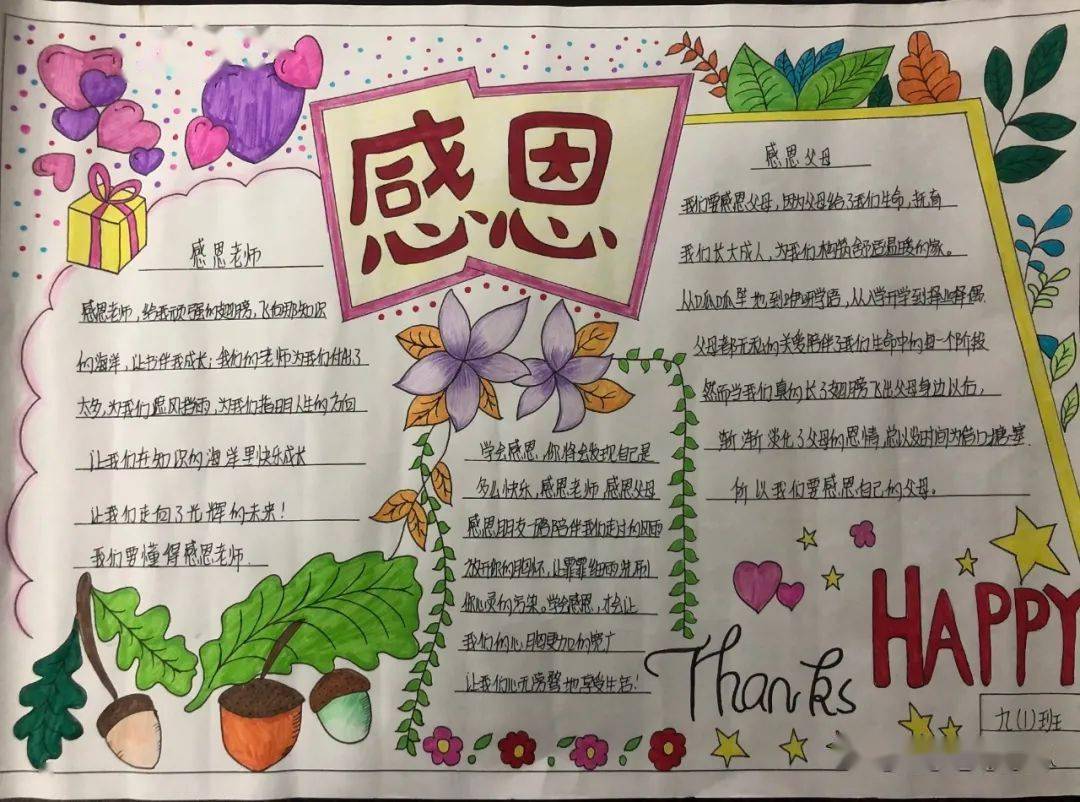 感恩
感恩老师
感恩老师，给我顽强的翅膀，飞向那知识
的海洋，让书伴我成长；我们的老师为我们付出了
太多，为我们遮风挡雨，为我们指明人生的方向
让我们在知识的海洋里快乐成长
让我们走向了光辉的未来！
我们要懂得感恩老师
学会感恩，你将会发现自己是
多么快乐，感恩老师，感恩父母
感恩朋友一路陪伴我们走过的风雨
放开你的胸怀，让霏霏细雨洗刷
你心灵的污染。学会感恩，才会让
我们的心胸更加的宽广
让我们心无旁骛地享受生活！
感恩父母
我们要感恩父母，因为父母给了我们生命，抚育
我们长大成人，为我们构筑舒适温暖的家。
从呱呱坠地到咿呀学语，从入学开学到择业择偶
父母都无私的关爱陪伴了我们生命中的每一个阶段
然而当我们真的长了翅膀飞出父母身边以后，
渐渐淡化了父母的恩情，总以没时间为借口搪塞
所以我们要感恩自己的父母。
Thanks
HAPPY
九(1)班